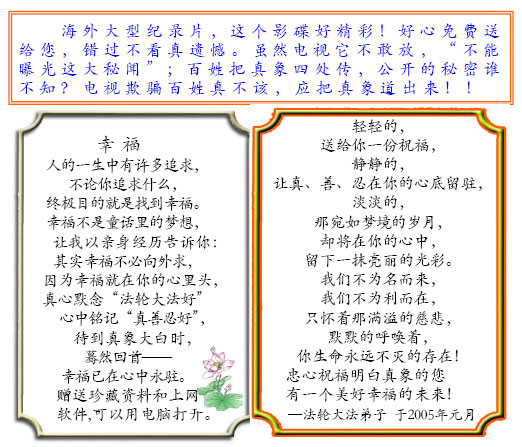 海外大型纪录片，这个影碟好精彩！好心免费送
给您，错过不看真遗憾。虽然电视它不敢放，“不能
曝光这大秘闻”；百姓把真象四处传，公开的秘密谁
不知？电视欺骗百姓真不该，应把真象道出来！！
幸 福
人的一生中有许多追求，
不论你追求什么，
终极目的就是找到幸福。
幸福不是童话里的梦想，
让我以亲身经历告诉你：
其实幸福不必向外求，
因为幸福就在你的心里头，
真心默念“法轮大法好”
心中铭记“真善忍好”，
待到真象大白时，
蓦然回首——
幸福已在心中永驻。
赠送珍藏资料和上网
软件，可以用电脑打开。
轻轻的，
送给你一份祝福，
静静的，
让真、善、忍在你的心底留驻，
淡淡的，
那宛如梦境的岁月，
却将在你的心中，
留下一抹亮丽的光彩。
我们不为名而来，
我们不为利而在，
只怀着那满溢的慈悲，
默默的呼唤着，
你生命永远不灭的存在！
忠心祝福明白真象的您
有一个美好幸福的未来！
—法轮大法弟子 于2005年元月